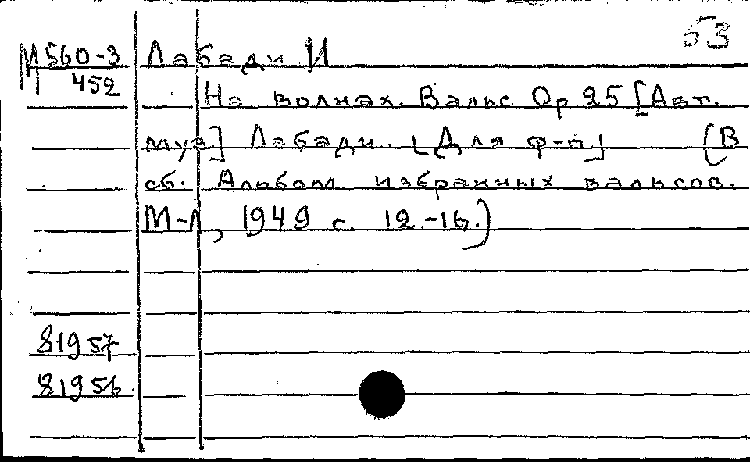 53
М560-3 Лабади И
452
На волнах. Вальс Op 25 [Авт.
муз] Лабади. [Для ф-п] (В
сб. Альбом избранных вальсов.
М-Л, 1949 с. 12-16.)
81957
81956